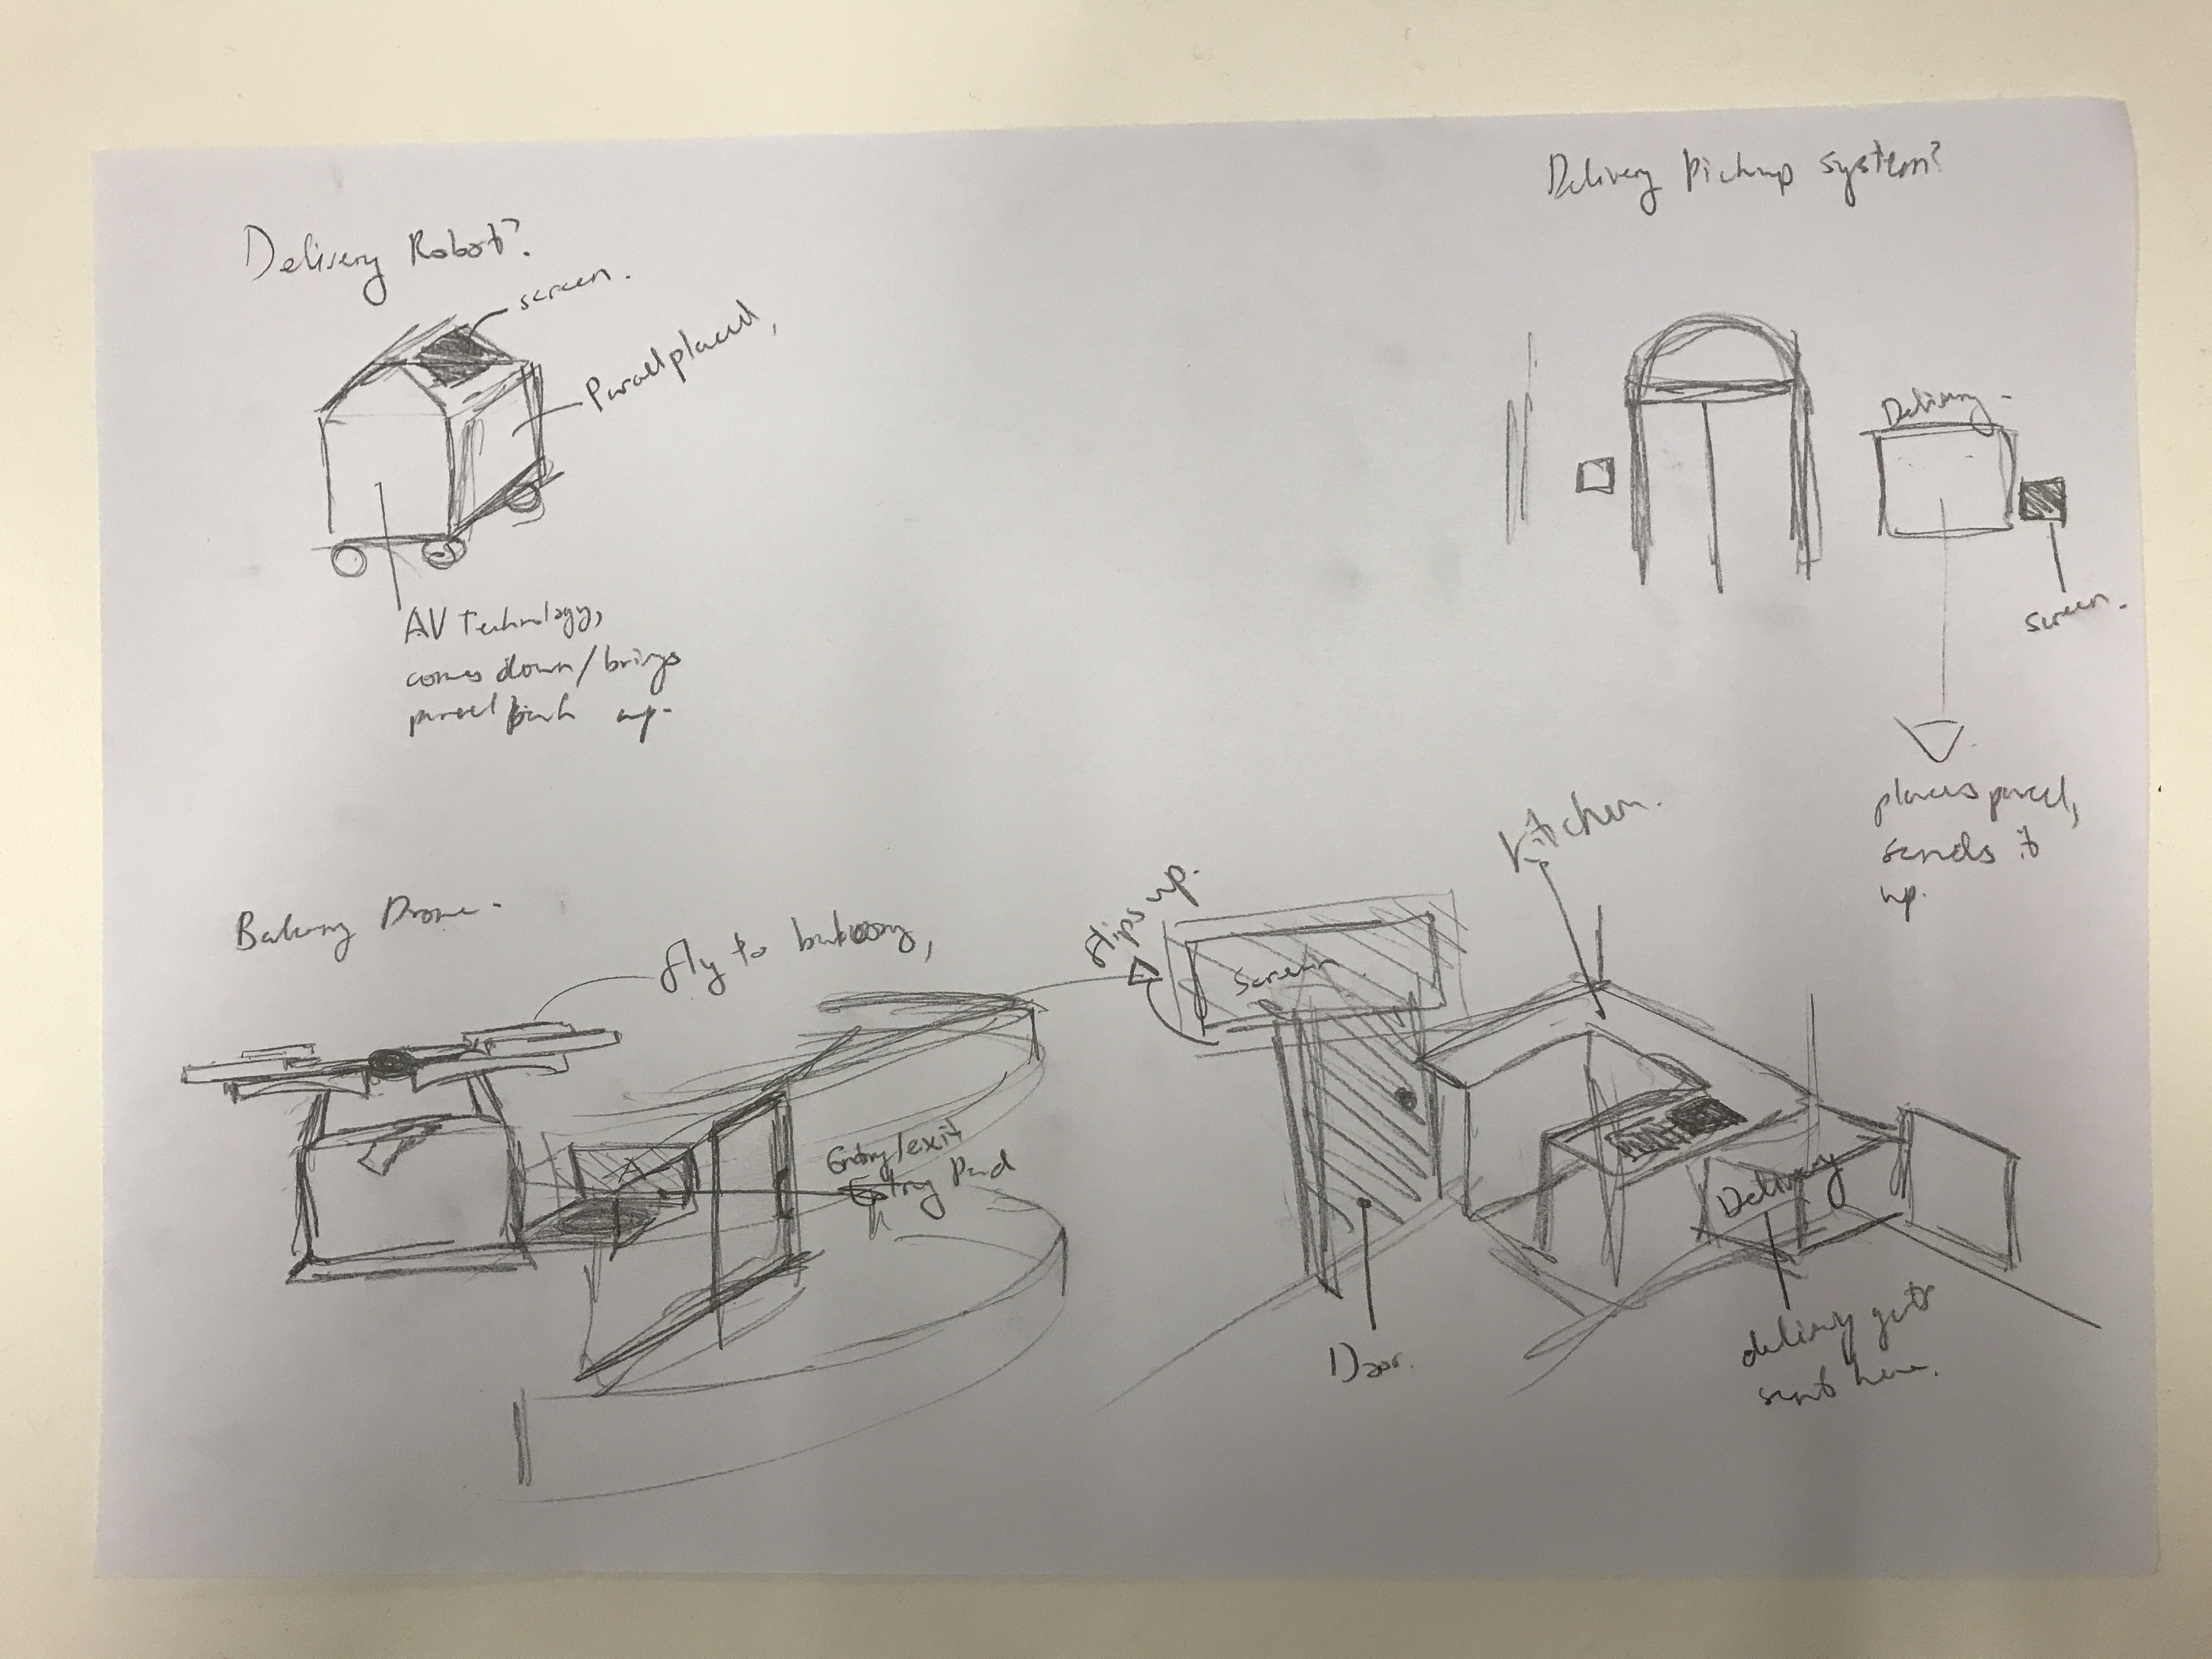 Delivery Robot?
screen.
Parcel placed,
AV Technology,
comes down/brings
parcel back up.
Delivery Pickup system?
Delivery.
screen.
places parcel,
sends it
up.
Balcony Drone.
fly to balcony,
Entry/exit
Entry Pad
flips up.
Screen
Kitchen.
Door.
Delivery
delivery gets
sent here.